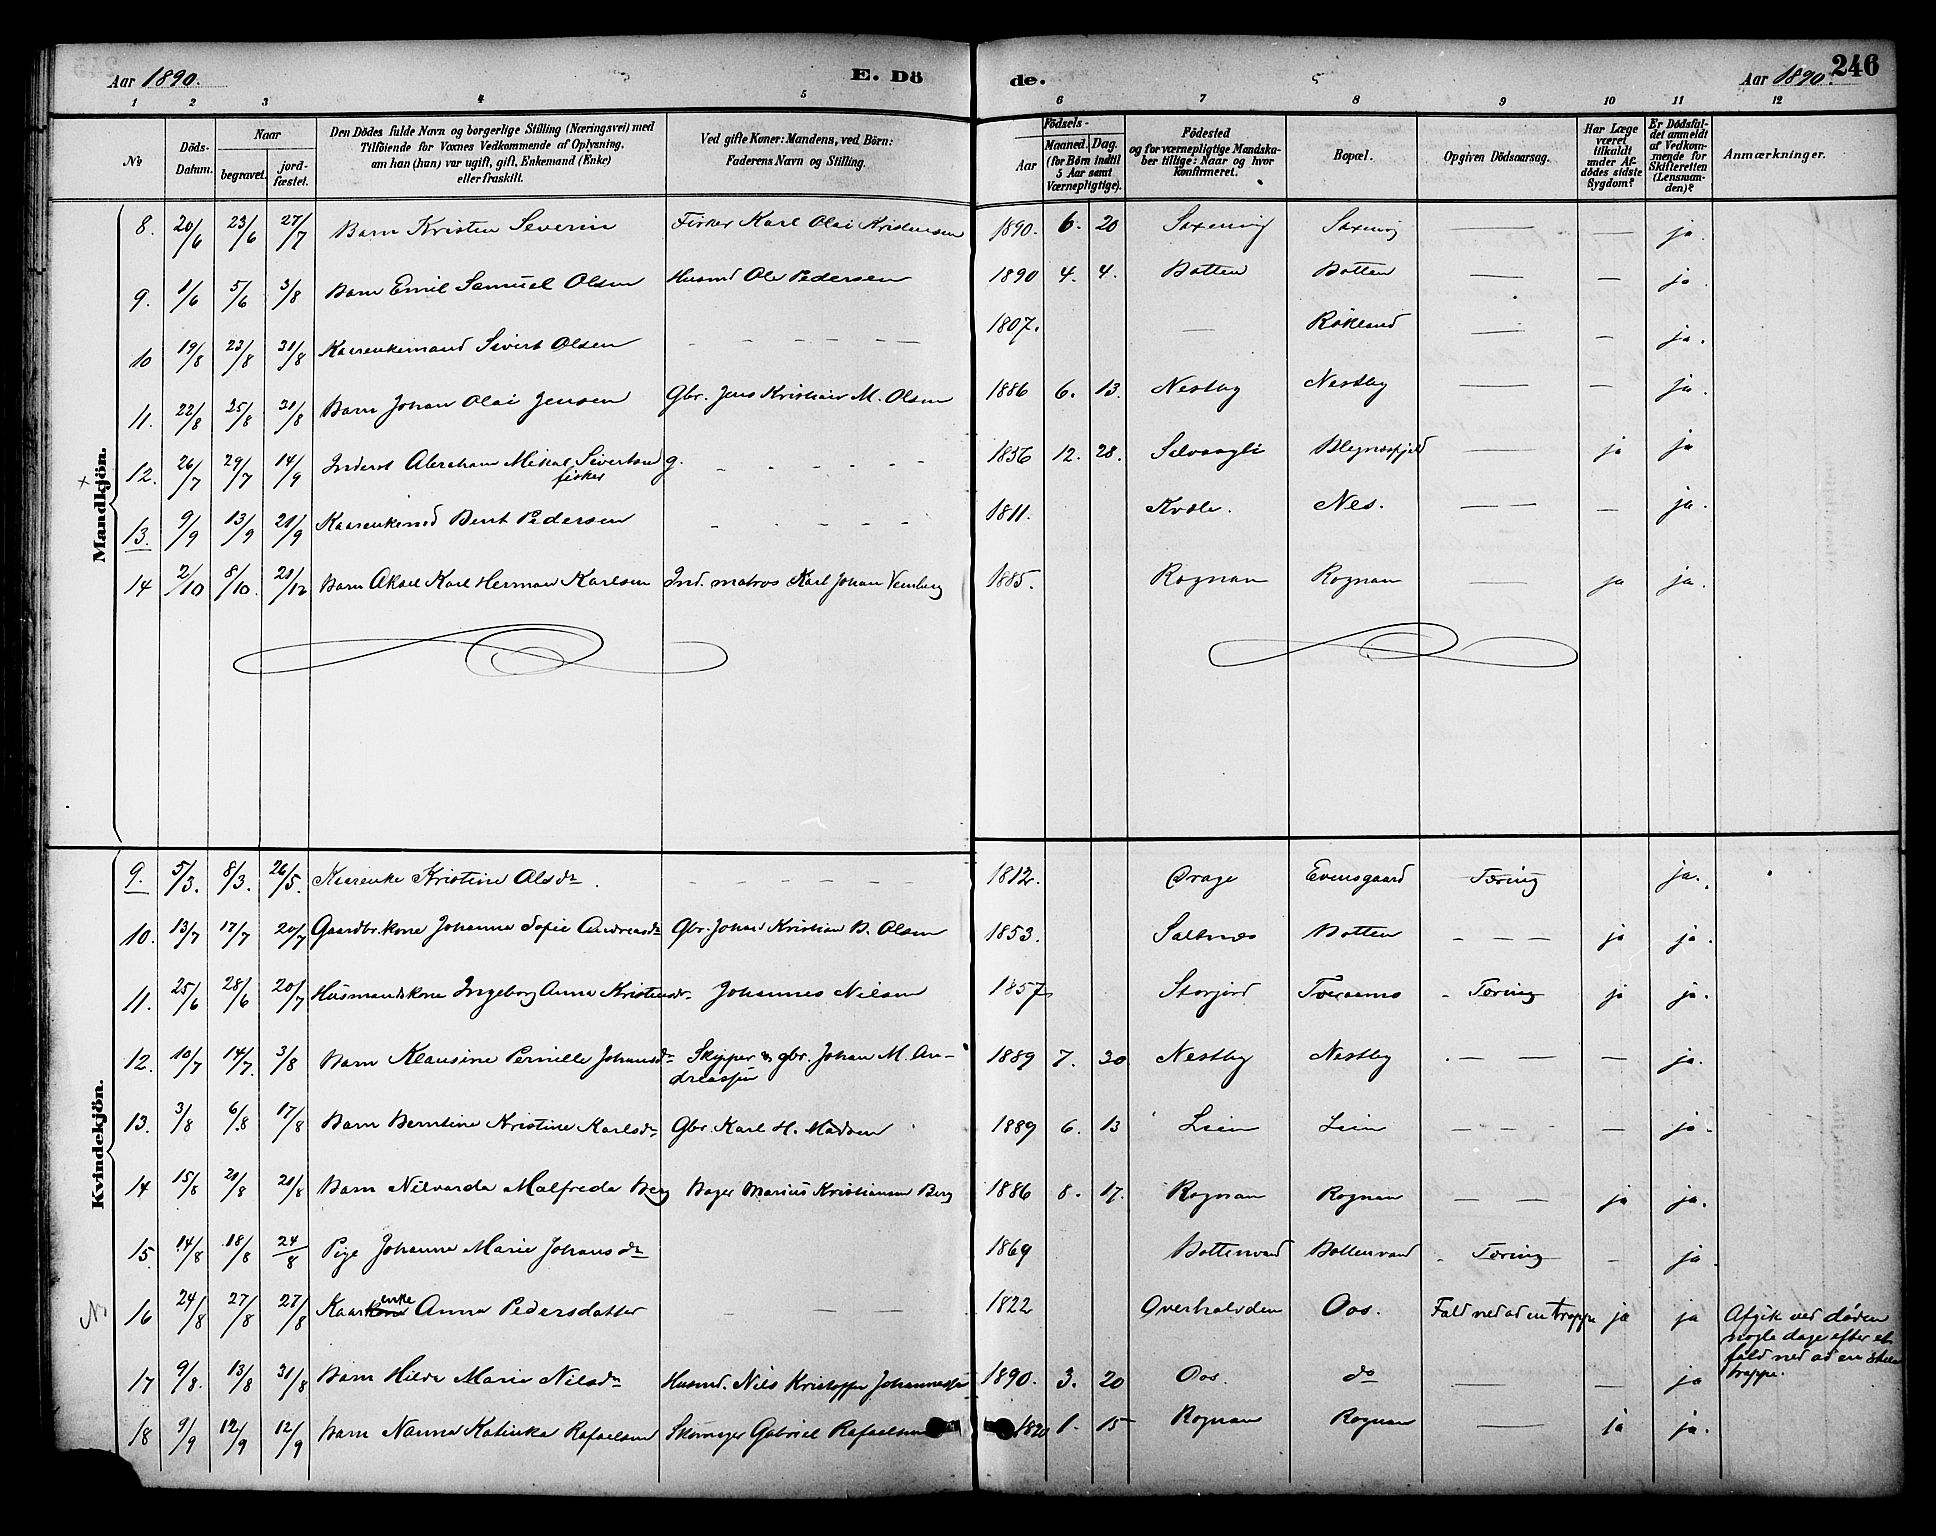 Aar 1890. E. Dö
de. Aar 1890. 246
1 2 3 4 5
6 7 8 9 10 11 12
No Döds-Datum. Naar begravet. jordfæstet. Den Dödes fulde Navn og borgerlige Stilling (Næringsvei) med Tilföiende for Voxnes Vedkommende af Oplysning, om han (hun) var ugift, gift, Enkemand (Enke) eller fraskilt. Ved gifte Koner: Mandens, ved Børn: Faderens Navn og Stilling.
Födsels- Aar Maaned. Dag. (for Børn indtil 5 Aar samt Værnepligtige). Födested og for værnepligtige Mandskaber tillige: Naar og hvor konfirmeret. Bopæl. Opgiven Dödsaarsag. Har Læge været tilkaldt under Afdödes sidste Sygdom? Er Dödsfaldet anmeldt af Vedkommende for Skifteretten (Lensmanden)? Anmærkninger.
Mandkjön.
8. 20/6 23/6 27/7 Barn Kristen Severin Fisker Karl Olai Kristensen 1890. 6. 20 Saxenvig Saxenvig — — ja.
9. 1/6 5/6 3/8 Barn Emil Samuel Olsen Husmd Ole Pedersen 1890 4. 4. Botten Botten — — ja.
10 19/8 23/8 31/8 Kaarenkemand Sivert Olsen - - - - - 1807. — Røkland — — ja.
11. 22/8 25/8 31/8 Barn Johan Olai Jensen Gbr. Jens Kristian M. Olsen 1886 6. 13. Nestby Nestby — — ja.
+ 12. 26/7 29/7 14/9 Inderst Abraham Mikal Sivertsen g. - - - - - 1856 12. 28. Selvaagli — ja ja
fisker
13. 9/9 13/9 21/9 Kaarenkemd Bent Pedersen - - - - - 1811. Kvæle. Nes. — — ja.
14 2/10 8/10. 21/12 Barn Aksel Karl Herman Karlsen Ind. matros Karl Johan 1885. Rognan Rognan — ja ja.
Kvindekjön.
9. 5/3. 8/3. 26/5. Kaarenke Kristine Olsdr. - - - - - - 1812. Drage Evensgaard Tæring ja.
10. 13/7 17/7 20/7 Gaardbr.kone Johanna Sofie Andreasdr Gbr. Johan Kristian B. Olsen 1853. Saltnes Botten - - - ja ja.
11. 25/6 28/6 20/7 Husmandskone Ingeborg Anna Kristensdr. Johannes Nilsen 1857 Storjord Tveraanes - Tæring ja ja.
12. 10/7 14/7. 3/8 Barn Klausine Pernille Johansdr Skipper og gbr. Johan M. An- 1889 7. 30 Nestby Nestby - — — — ja.
dreassen
13. 3/8 6/8 17/8 Barn Berntine Kristine Karlsdr Gbr. Karl H. Madsen 1889 6. 13 Lein Lein - - - — ja.
14 15/8 21/8 21/8 Barn Nilvarda Malfreda Berg Bager Marius Kristiansen Berg 1886 8. 17. Rognan Rognan — — ja ja.
15. 14/8 18/8 24/8 Pige Johanna Marie Johansdr 1869 Bottenvand Bottenvand - Tæring - ja
16 24/8 27/8 27/8 Kaarkone enke Anna Pedersdatter — — — 1822 Overhalvden Oos. Fald ned ad en trappe ja ja Afgik ved døden
nogle dage efter et
fald ned ad en
trappe.
17 9/8. 13/8 31/8 Barn Hilda Marie Nilsdr Husmd. Nils Kristoffer Johannessen 1890. 3. 20 Oos. do — — ja
18 9/9 12/9 12/9 Barn Nanna Katinka Rafaelsen Skomager Gabriel Rafaelsen 1890 1. 15 Rognan Rognan — ja ja.